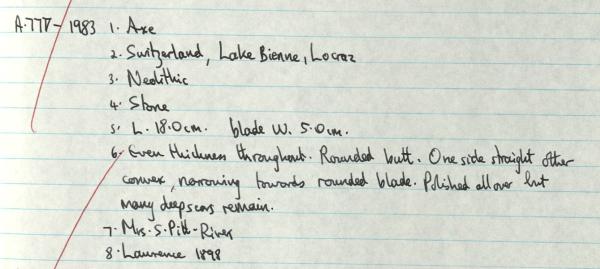 A.777-1983 1. Axe
2. Switzerland, Lake Bienne, Locraz
3. Neolithic
4. Stone
5. L. 18.0cm. blade W. 5.0cm.
6. Even thickness throughout. Rounded butt. One side straight other
convex, narrowing towards rounded blade. Polished all over but
many deep scars remain.
7. Mrs. S. Pitt-River
8. Lawrence 1898